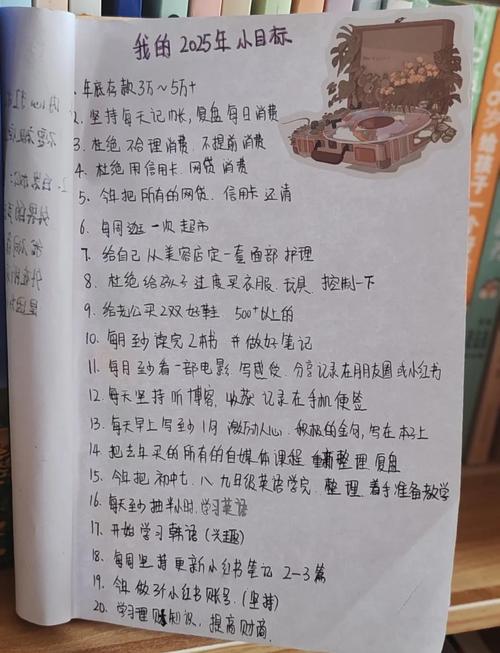 我的 2025年 小目标
1. 年底存款3万~5万+
2. 坚持每天记帐，复盘每日消费
3. 杜绝不合理消费. 不提前消费
4. 杜绝用信用卡. 网贷 消费
5. 今年把所有的网贷. 信用卡还清
6. 每周逛一次超市
7. 给自己从美容店定一套面部护理
8. 杜绝给孩子过度买衣服. 玩具. 控制一下
9. 给老公买2双好鞋 500+以上的
10. 每月至少读完2本书 并做好笔记
11. 每月至少看一部电影. 写感受. 分享记录在朋友圈或小红书
12. 每天坚持听博客. 收获记录在手机便签
13. 每天早上写至少1句 激励人心. 积极的金句，写在本子上
14. 把去年买的所有的自媒体课程 重新整理 复盘
15. 今年把初中七. 八 九年级英语学完. 整理. 着手准备教学
16. 每天至少抽半小时.学习英语
17. 开始学习韩语 (兴趣)
18. 每周坚持更新小红书笔记 2-3篇
19. 今年做3个小红书账号. (坚持)
20. 学习理财知识，提高财商